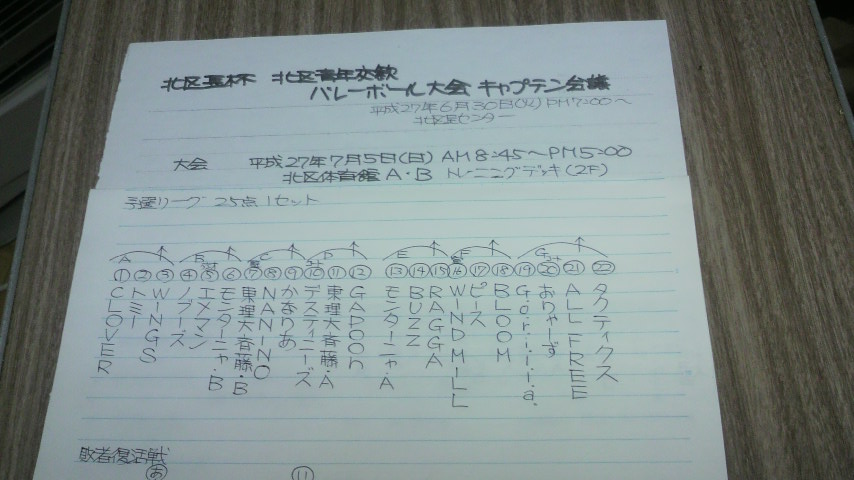 北区長杯 北区青年交歓
バレーボール大会 キャプテン会議
平成27年6月30日(火) PM7:00～
北区民センター
大会 平成27年7月5日(日) AM8:45～PM5:00
北区体育館 A・B トレーニングデッキ(2F)
予選リーグ 25点1セット
A B C D E F G
① ② ③ ④ ⑤ ⑥ ⑦ ⑧ ⑨ ⑩ ⑪ ⑫ ⑬ ⑭ ⑮ ⑯ ⑰ ⑱ ⑲ ⑳ ㉑ ㉒
CLOVER
トミー
WINGS
ノブーズ
エメマン
モンターニャ・B
東理大斉藤・B
NANINO
かなりあ
デスティニーズ
東理大斉藤・A
GAPOON
モンターニャ・A
BUZZ
RAGGA
WINDMILL
ピース
BLOOM
Gorilla.
おりゃーず
ALL FREE
タクティクス
敗者復活戦
あ 11